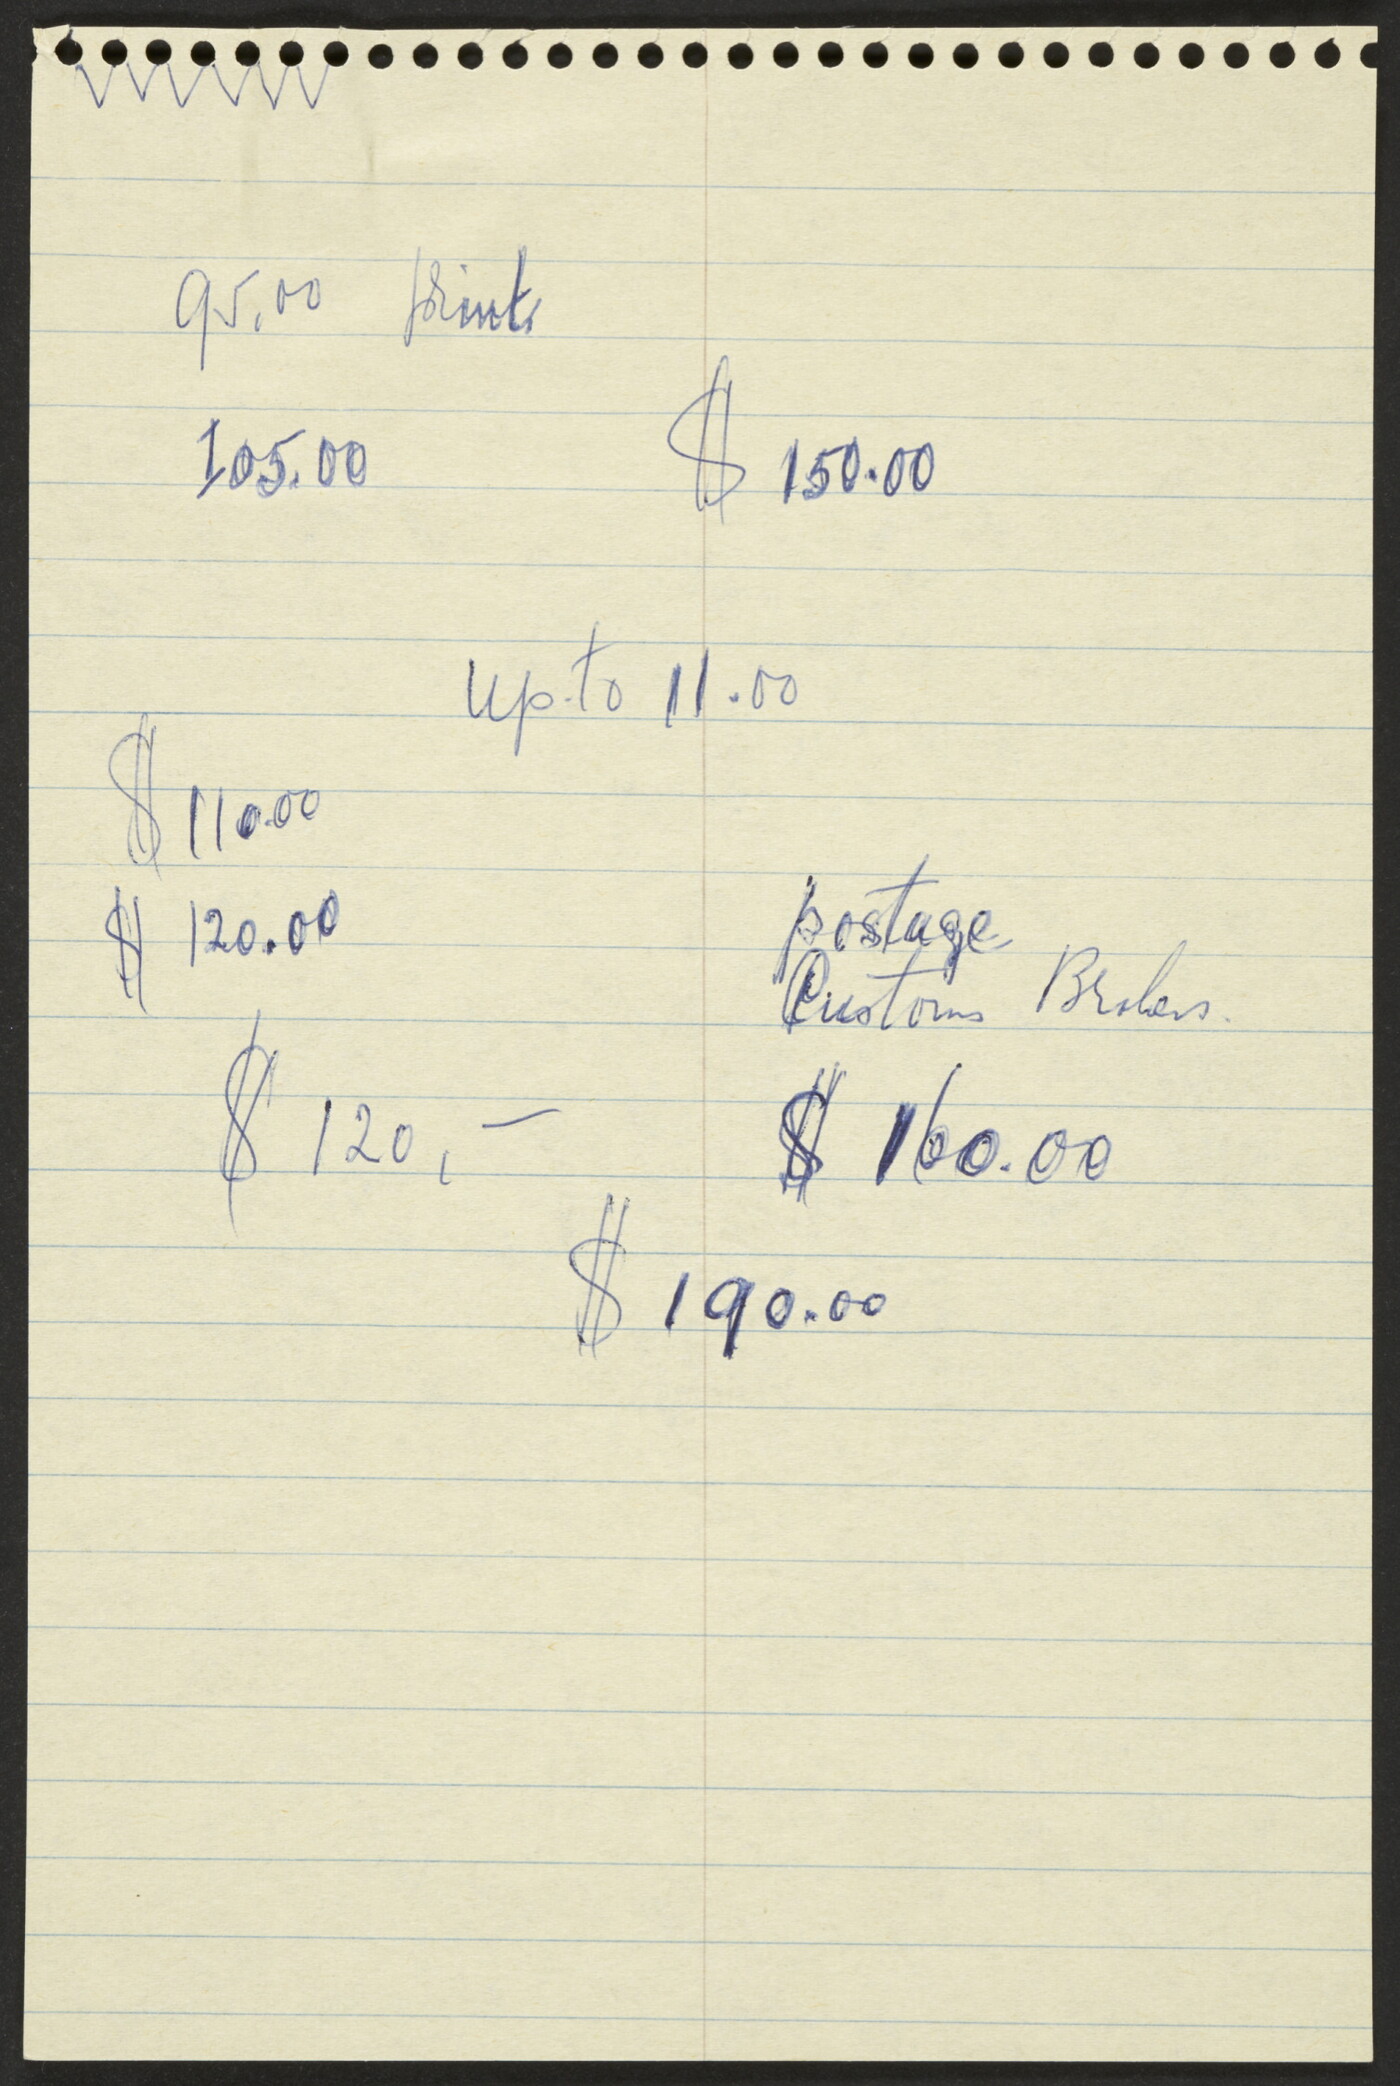 95,00 prints
105.00 $ 150.00
up to 11.00
$ 110.00
$ 120.00 postage
Customs Brokers.
$ 120,— $ 160.00
$ 190.00